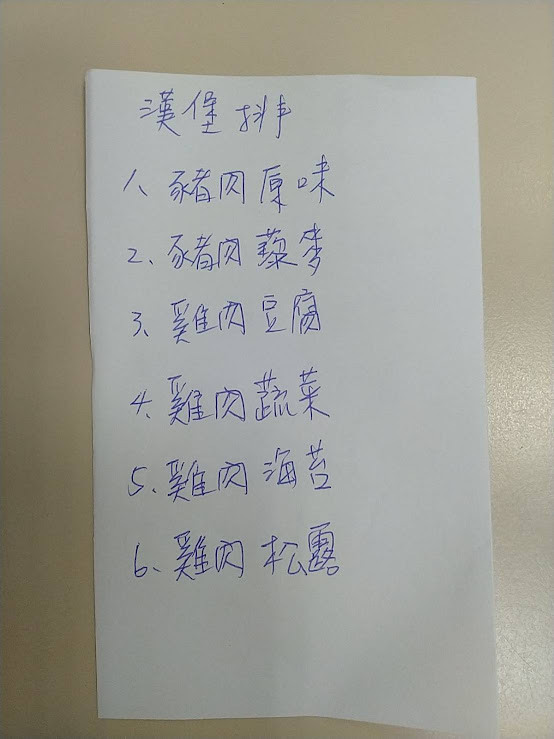 漢堡排
1、豬肉原味
2、豬肉藜麥
3、雞肉豆腐
4、雞肉蔬菜
5、雞肉海苔
6、雞肉松露